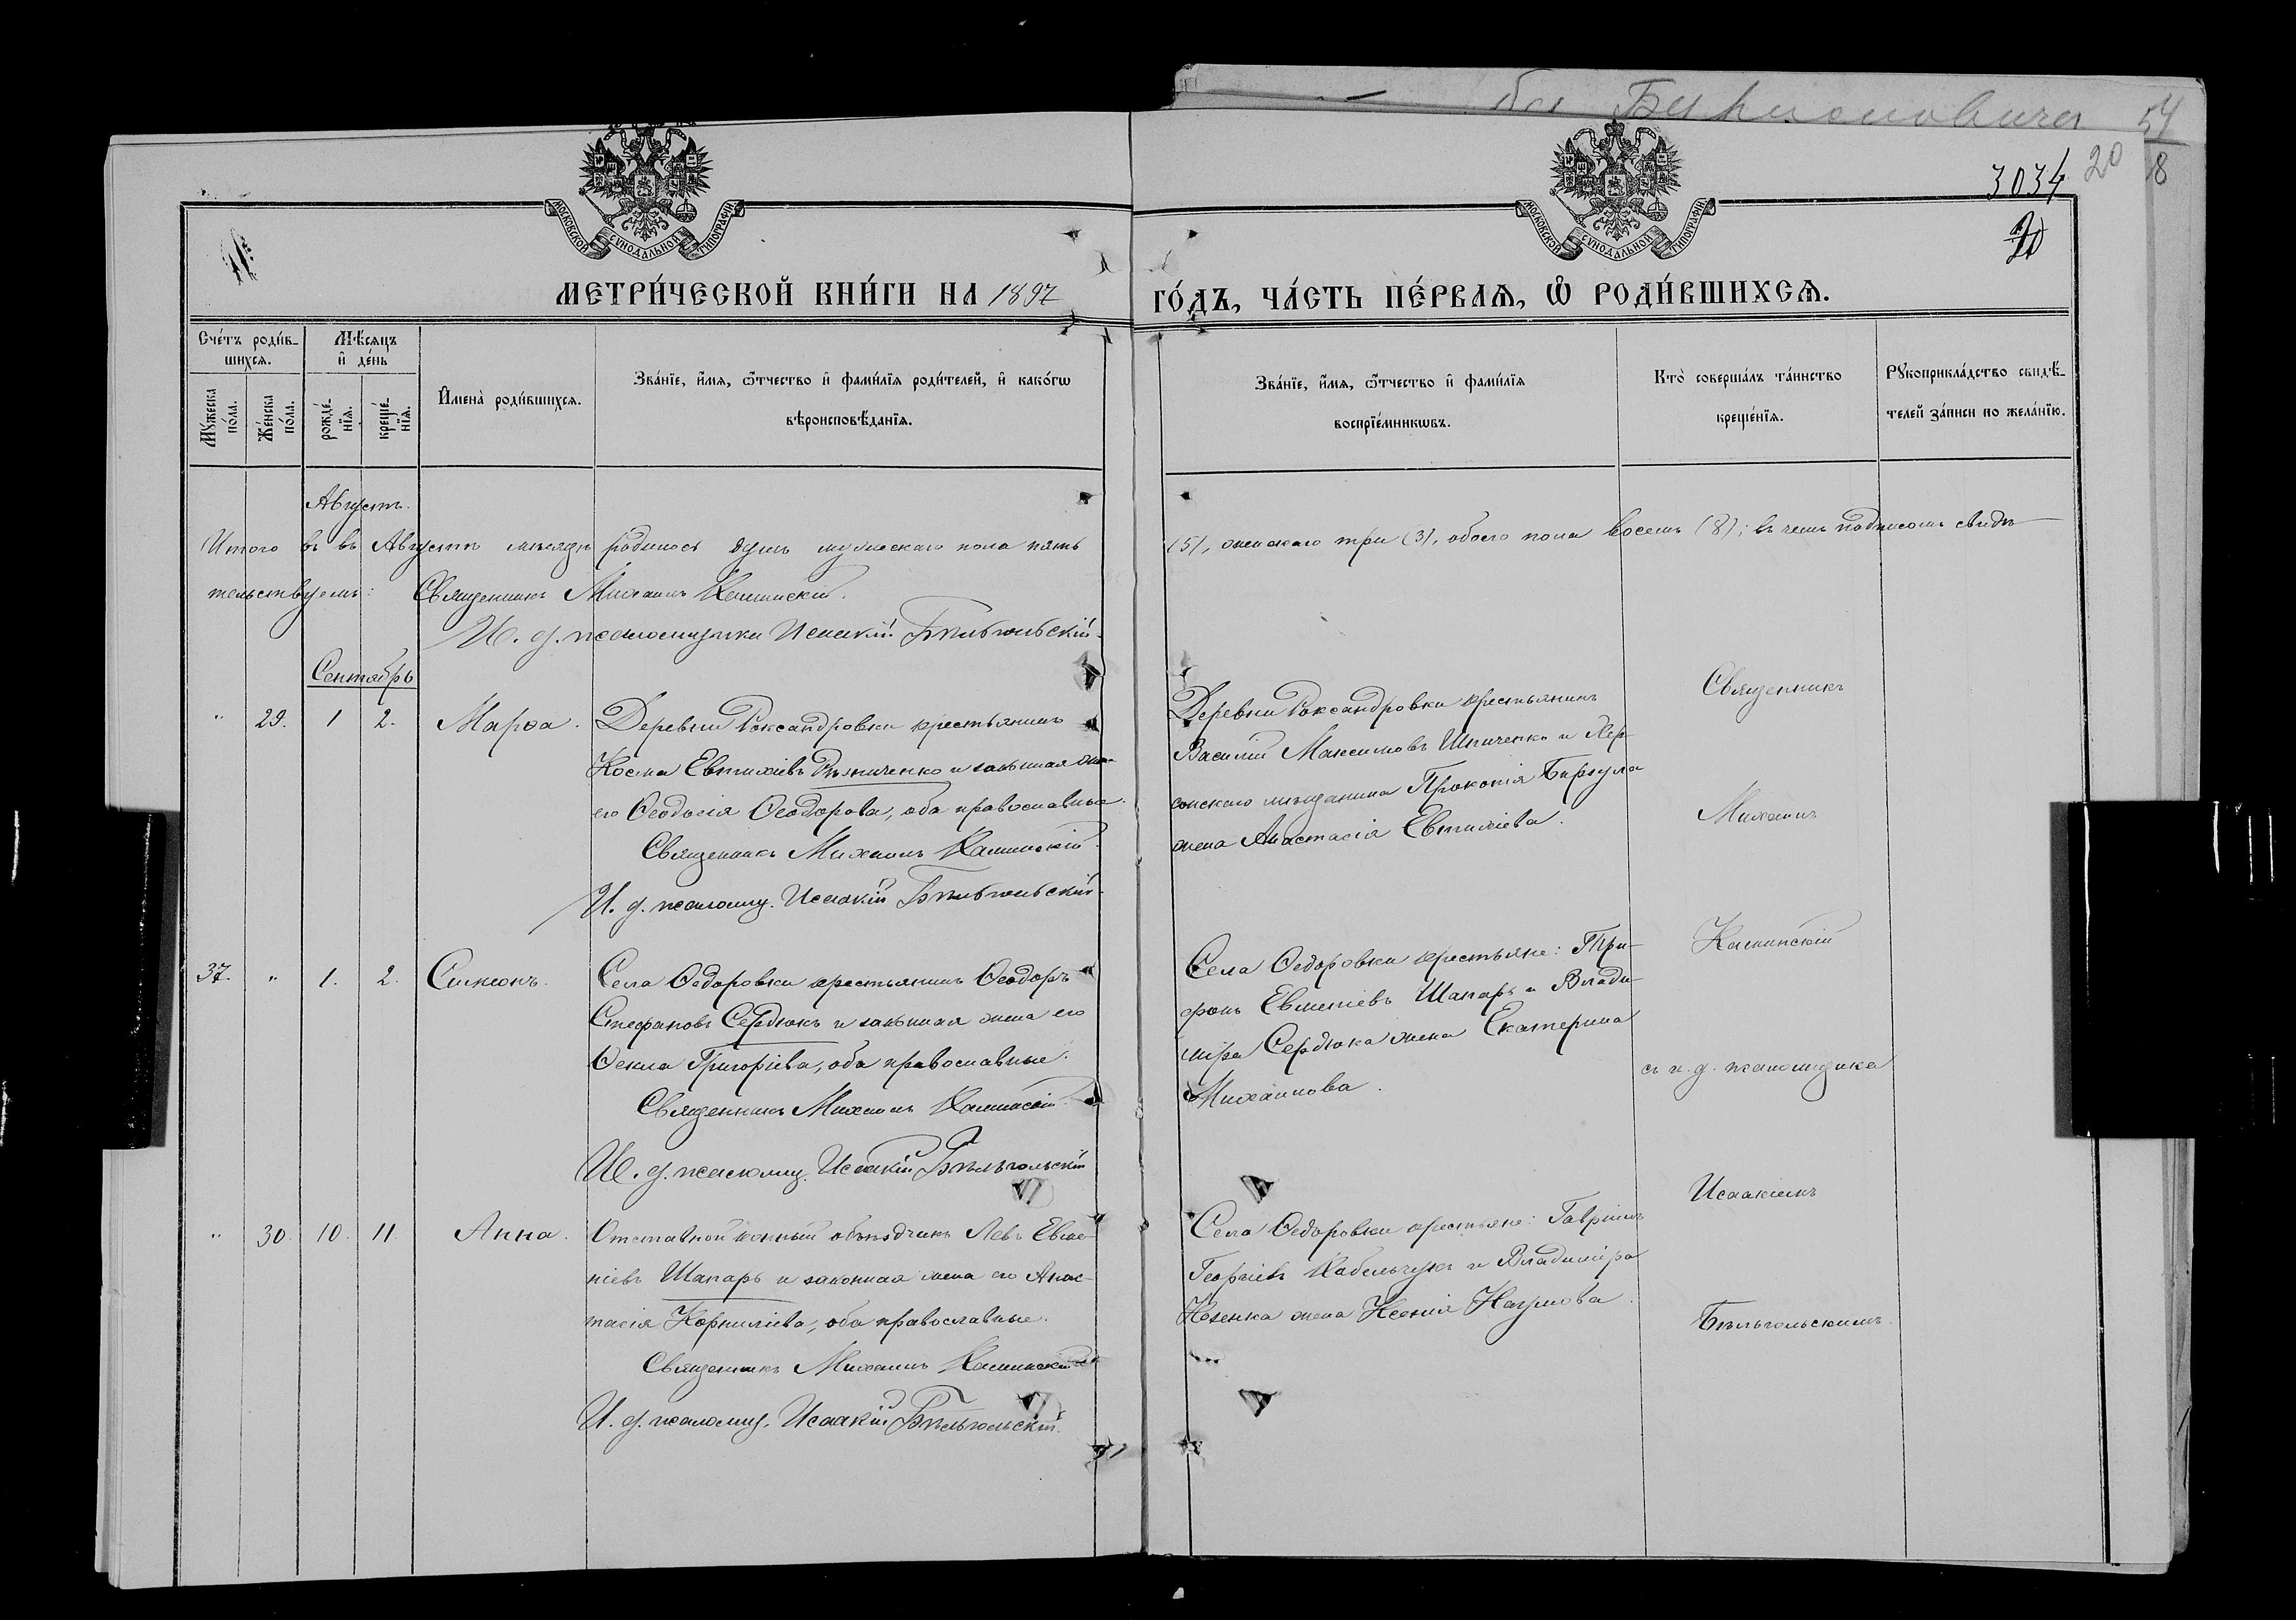 54
3034 20 18
20
МОСКОВСКОЙ СѴНОДАЛЬНОЙ ТИПОГРАФІИ
МОСКОВСКОЙ СѴНОДАЛЬНОЙ ТИПОГРАФІИ
МЕТРИ́ЧЕСКОЙ КНИ́ГИ НА 1897 ГО́ДЪ, ЧА́СТЬ ПЕ́РВАЯ, Ѽ РОДИ́ВШИХСЯ.
Сче́тъ роди́в-
шихся.
Мѣ́сяцъ
и҆ де́нь
Мꙋ́жеска
по́ла.
Же́нска
по́ла.
рожде́-
нїя.
креще́-
нїя.
И҆мена̀ роди́вшихся.
Зва́нїе, и҆́мя, ѻ҆́тчество и҆ фами́лїя роди́телей, и҆ како́гѡ
вѣроисповѣ́данїя.
Зва́нїе, и҆́мя, ѻ҆́тчество и҆ фами́лїя
воспрїе́мникѡвъ.
Кто̀ соверша́лъ та́инство
креще́нїя.
Рꙋкоприкла́дство свидѣ́-
телей за́писи по жела́нїю.
Августъ.
Итого въ въ Августѣ мѣсяцѣ родилось душъ мужескаго пола пять (5), женскаго три (3), обоего пола восемь (8); въ чемъ подписомъ свидѣ-
тельствуемъ: Священникъ Михаилъ Калинскій.
И. д. псаломщика Исаакій Бѣльгольскій.
Сентябрь
" 29. 1 2. Марѳа. Деревни Роксандровки крестьянинъ
Косма Евтихіевъ Рѣзниченко и законная жена
его Ѳеодосія Ѳеодорова, оба православные.
Священникъ Михаилъ Калинскій.
И. д. псаломщ. Исаакій Бѣльгольскій.
Деревни Роксандровки крестьянинъ
Василій Максимовъ Шпиченко и Хер-
сонскаго мѣщанина Прокопія Биргула
жена Анастасія Евтихіева.
Священникъ
Михаилъ
Калинскій
37. " 1. 2. Симеонъ. Села Ѳедоровки крестьянинъ Ѳеодоръ
Стефановъ Сердюкъ и законная жена его
Ѳекла Григоріева, оба православные.
Священникъ Михаилъ Калинскій.
И. д. псаломщ. Исаакій Бѣльгольскій
Села Ѳедоровки крестьяне: Три-
фонъ Евменіевъ Шапарь и Влади-
міра Сердюка жена Екатерина
Михаилова.
съ и. д. псаломщика
Исаакіемъ
" 30. 10. 11. Анна. Отставной конный объѣздчикъ Левъ Евме-
ніевъ Шапарь и законная жена его Анас-
тасія Корниліева, оба православные.
Священникъ Михаилъ Калинскій
И. д. псаломщ. Исаакій Бѣльгольскій.
Села Ѳедоровки крестьяне: Гавріилъ
Георгіевъ Кабельчукъ и Владиміра
жена Ксенія Наумова.
Бѣльгольскимъ.